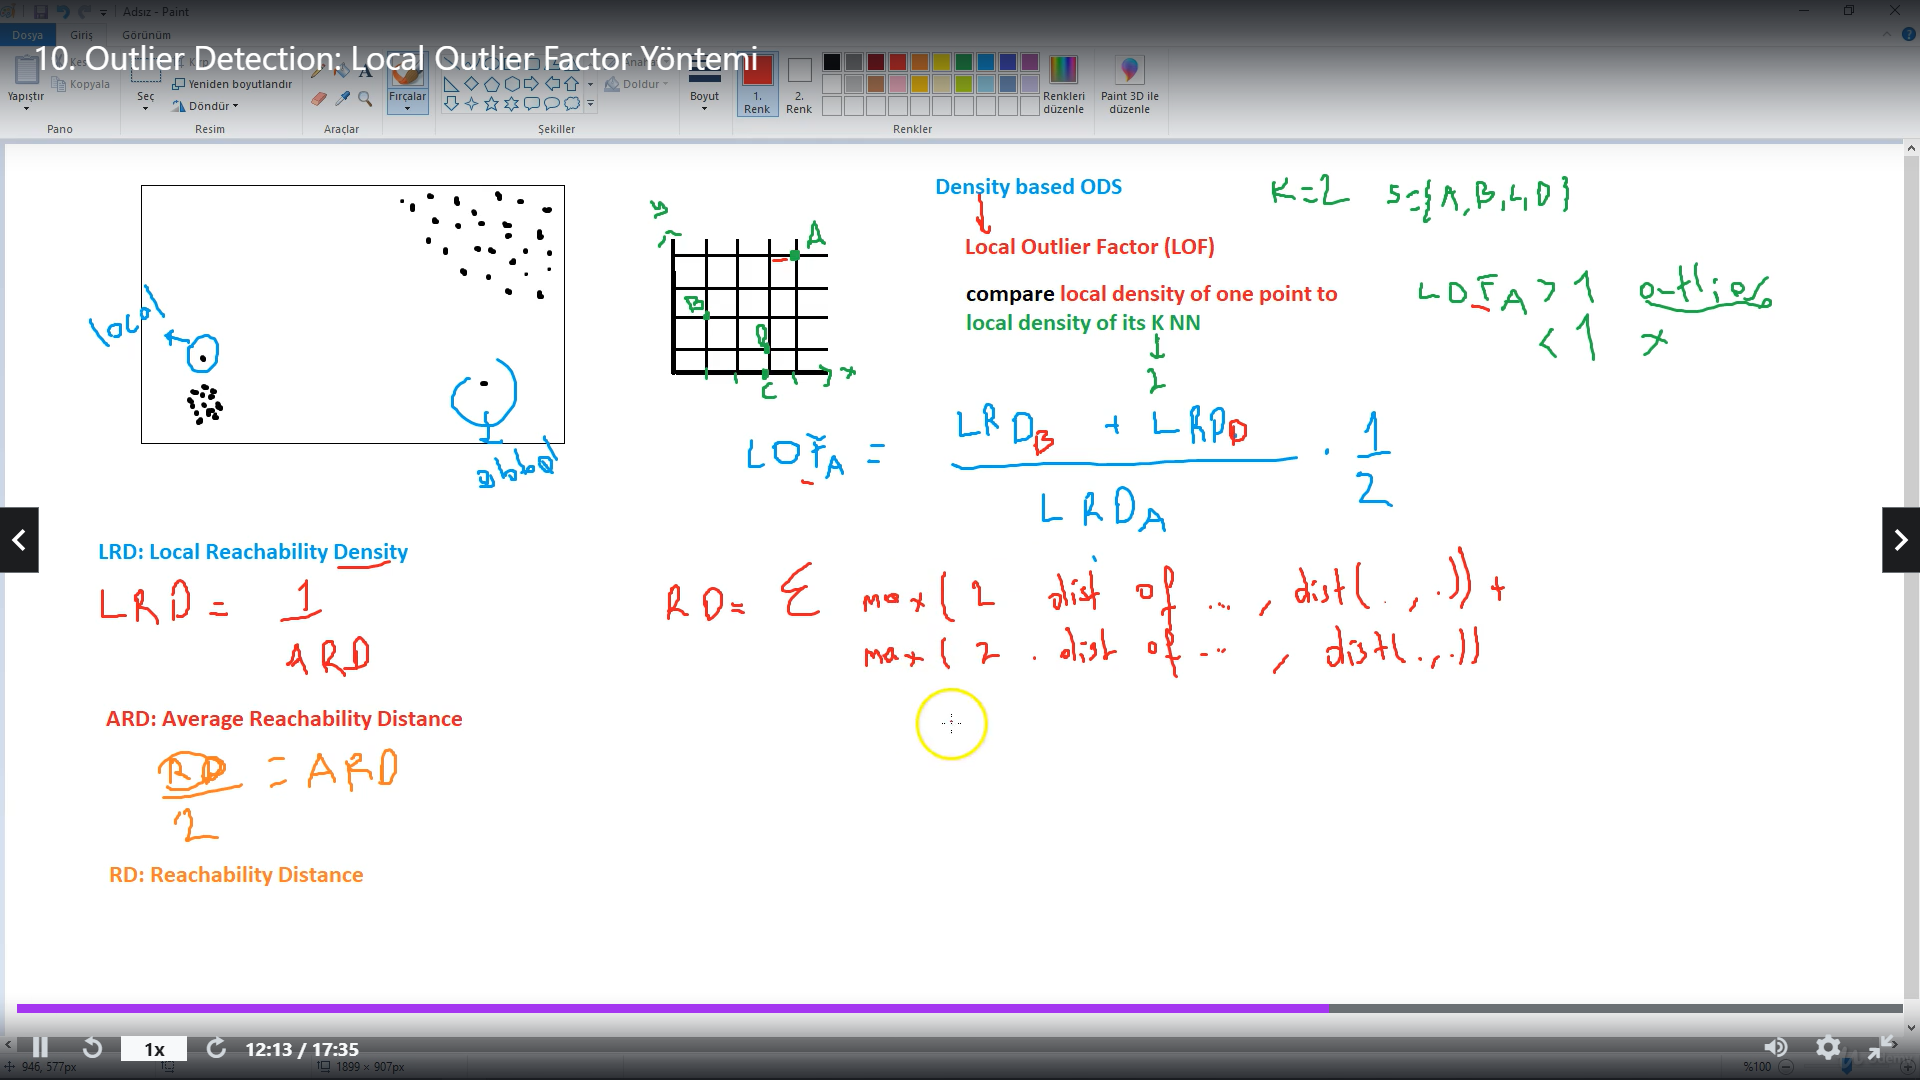 Adsız - Paint
Dosya
Giriş
Görünüm
10. Outlier Detection: Local Outlier Factor Yöntemi
Yapıştır
Kopyala
Pano
Seç
Yeniden boyutlandır
Döndür
Resim
Araçlar
Fırçalar
Doldur
Şekiller
Boyut
1.
Renk
2.
Renk
Renkler
Renkleri
düzenle
Paint 3D ile
düzenle
Density based ODS
K=2
Local Outlier Factor (LOF)
compare local density of one point to
local density of its K NN
2
LOF A > 1 outlier
< 1 x
local
global
y
A
B
C
x
LOF A = LRD B + LRD D . 1
LRD A 2
LRD: Local Reachability Density
LRD = 1
ARD
RD = Σ max( 2 dist of ... , dist( . , . )) +
max( 2 . dist of ... , dist( . , . ))
ARD: Average Reachability Distance
RD = ARD
2
RD: Reachability Distance
1x
12:13 / 17:35
946, 577px
1899 × 907px
%100